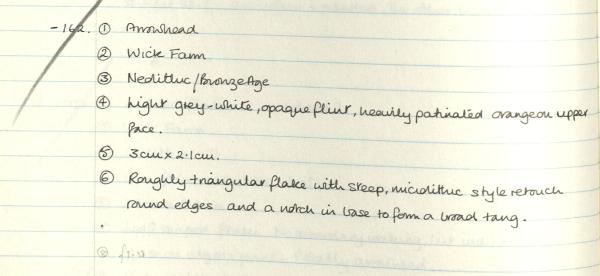 -162. ① Arrowhead
② Wick Farm
③ Neolithic/Bronze Age
④ Light grey-white, opaque flint, heavily patinated orange on upper
face.
⑤ 3cm x 2.1cm.
⑥ Roughly triangular flake with steep, microlithic style retouch
round edges and a notch in base to form a broad tang.